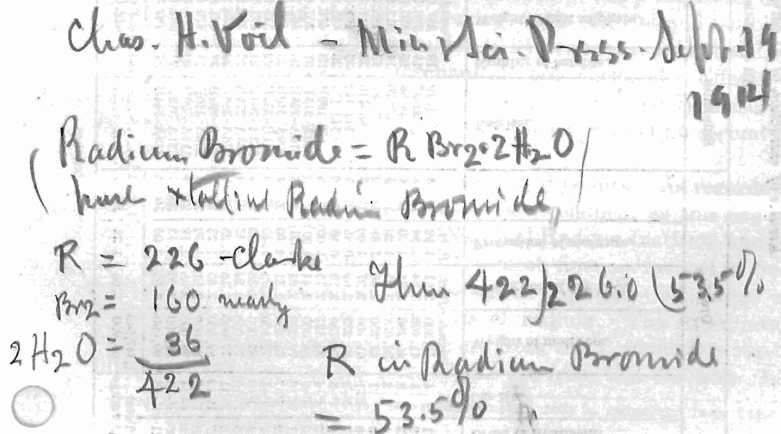 Chas. H. Viol - Min & Sci. Press. Sept. 19
1914
(Radium Bromide = R Br2·2H2O)
pure xtalline Radium Bromide,,
R = 226 - Clarke
Br2 = 160 nearly
2H2O = 36
422
Then 422)226.0(53.5%
R in Radium Bromide
= 53.5%